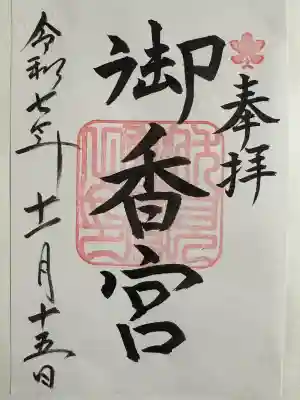 奉拝
御香宮
令和七年十一月十五日